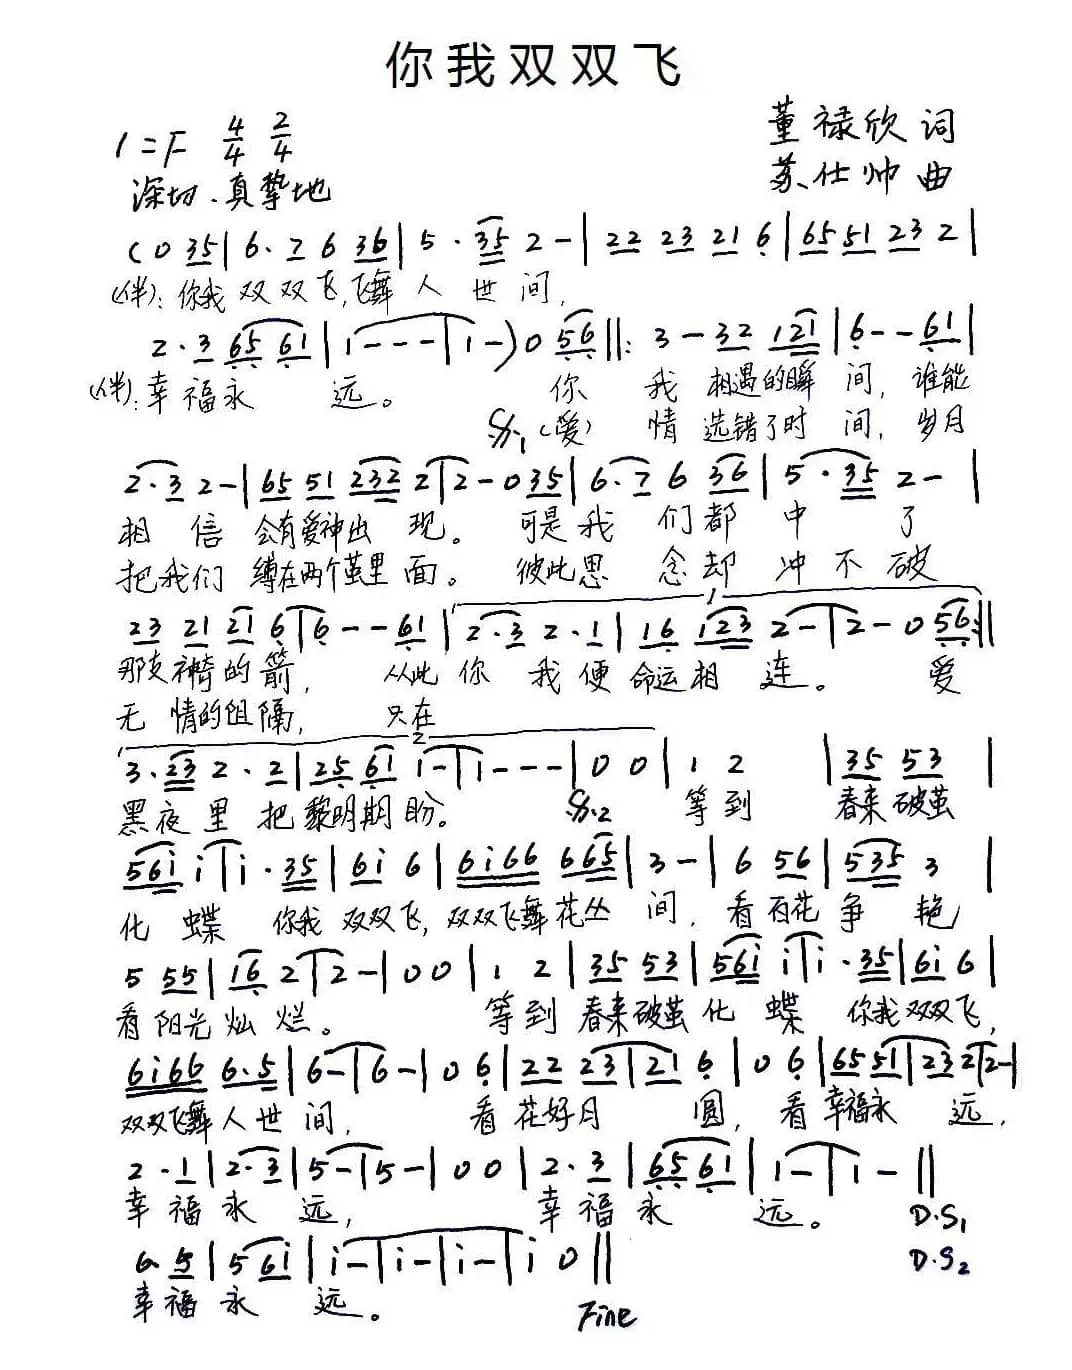 你我双双飞
1=F 4/4 2/4
董禄欣 词
深切、真挚地
苏仕帅 曲
(0 35 | 6. 7 6 36 | 5 . 35 2 - | 22 23 21 6 | 65 51 23 2 |
(伴): 你我 双 双 飞, 飞舞 人 世 间,
2 . 3 65 61 | 1 - - - | 1 - ) 0 56 ||: 3 - 32 121 | 6 - - 61 |
(伴): 幸 福 永 远。 你 我 相遇的瞬 间, 谁能
𝄋1 (爱) 情 选错了时 间, 岁月
2 . 3 2 - | 65 51 232 2 | 2 - 0 35 | 6 . 7 6 36 | 5 . 35 2 - |
相 信 会有爱神出 现。 可是 我 们 都 中 了
把 我们 缚在两个茧里 面。 彼此 思 念 却 冲 不 破
23 21 21 6 | 6 - - 61 | 1 2 . 3 2 . 1 | 16 123 2 - | 2 - 0 56 :||
那支神奇的 箭, 从此 你 我 便 命运相 连。 爱
无 情的阻隔, 只在
2 3 . 23 2 . 2 | 25 61 i - | i - - - | 0 0 | 1 2 | 35 53 |
黑夜 里 把 黎明期 盼。 𝄋2 等 到 春来 破茧
56i i | i . 35 | 6i 6 | 6i66 665 | 3 - | 6 56 | 535 3 |
化 蝶 你我 双双飞, 双双飞舞花丛 间, 看 百花 争 艳
5 55 | 16 2 | 2 - | 0 0 | 1 2 | 35 53 | 56i i | i . 35 | 6i 6 |
看 阳光 灿 烂。 等 到 春来 破茧 化 蝶 你我 双双飞,
6i66 6.5 | 6 - | 6 - | 0 6 | 22 23 | 21 6 | 0 6 | 65 51 | 23 2 | 2 - |
双双飞舞人 世 间, 看 花好月 圆, 看 幸福永 远,
2 . 1 | 2 . 3 | 5 - | 5 - | 0 0 | 2 . 3 | 65 61 | 1 - | 1 - ||
幸 福 永 远, 幸 福 永 远。 D.S1
6. 5 | 5 6i | i - | i - | i - | i 0 || D.S2
幸 福 永 远。 Fine